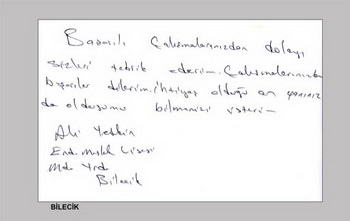 Başarılı Çalışmalarınızdan dolayı
sizleri tebrik ederim. Çalışmalarınızda
başarılar dilerim. ihtiyaç olduğu an yanınız
da olduğumu bilmenizi isterim
Ali Yetkin
End. Meslek Lisesi
Md. Yrd.
Bilecik
BİLECİK